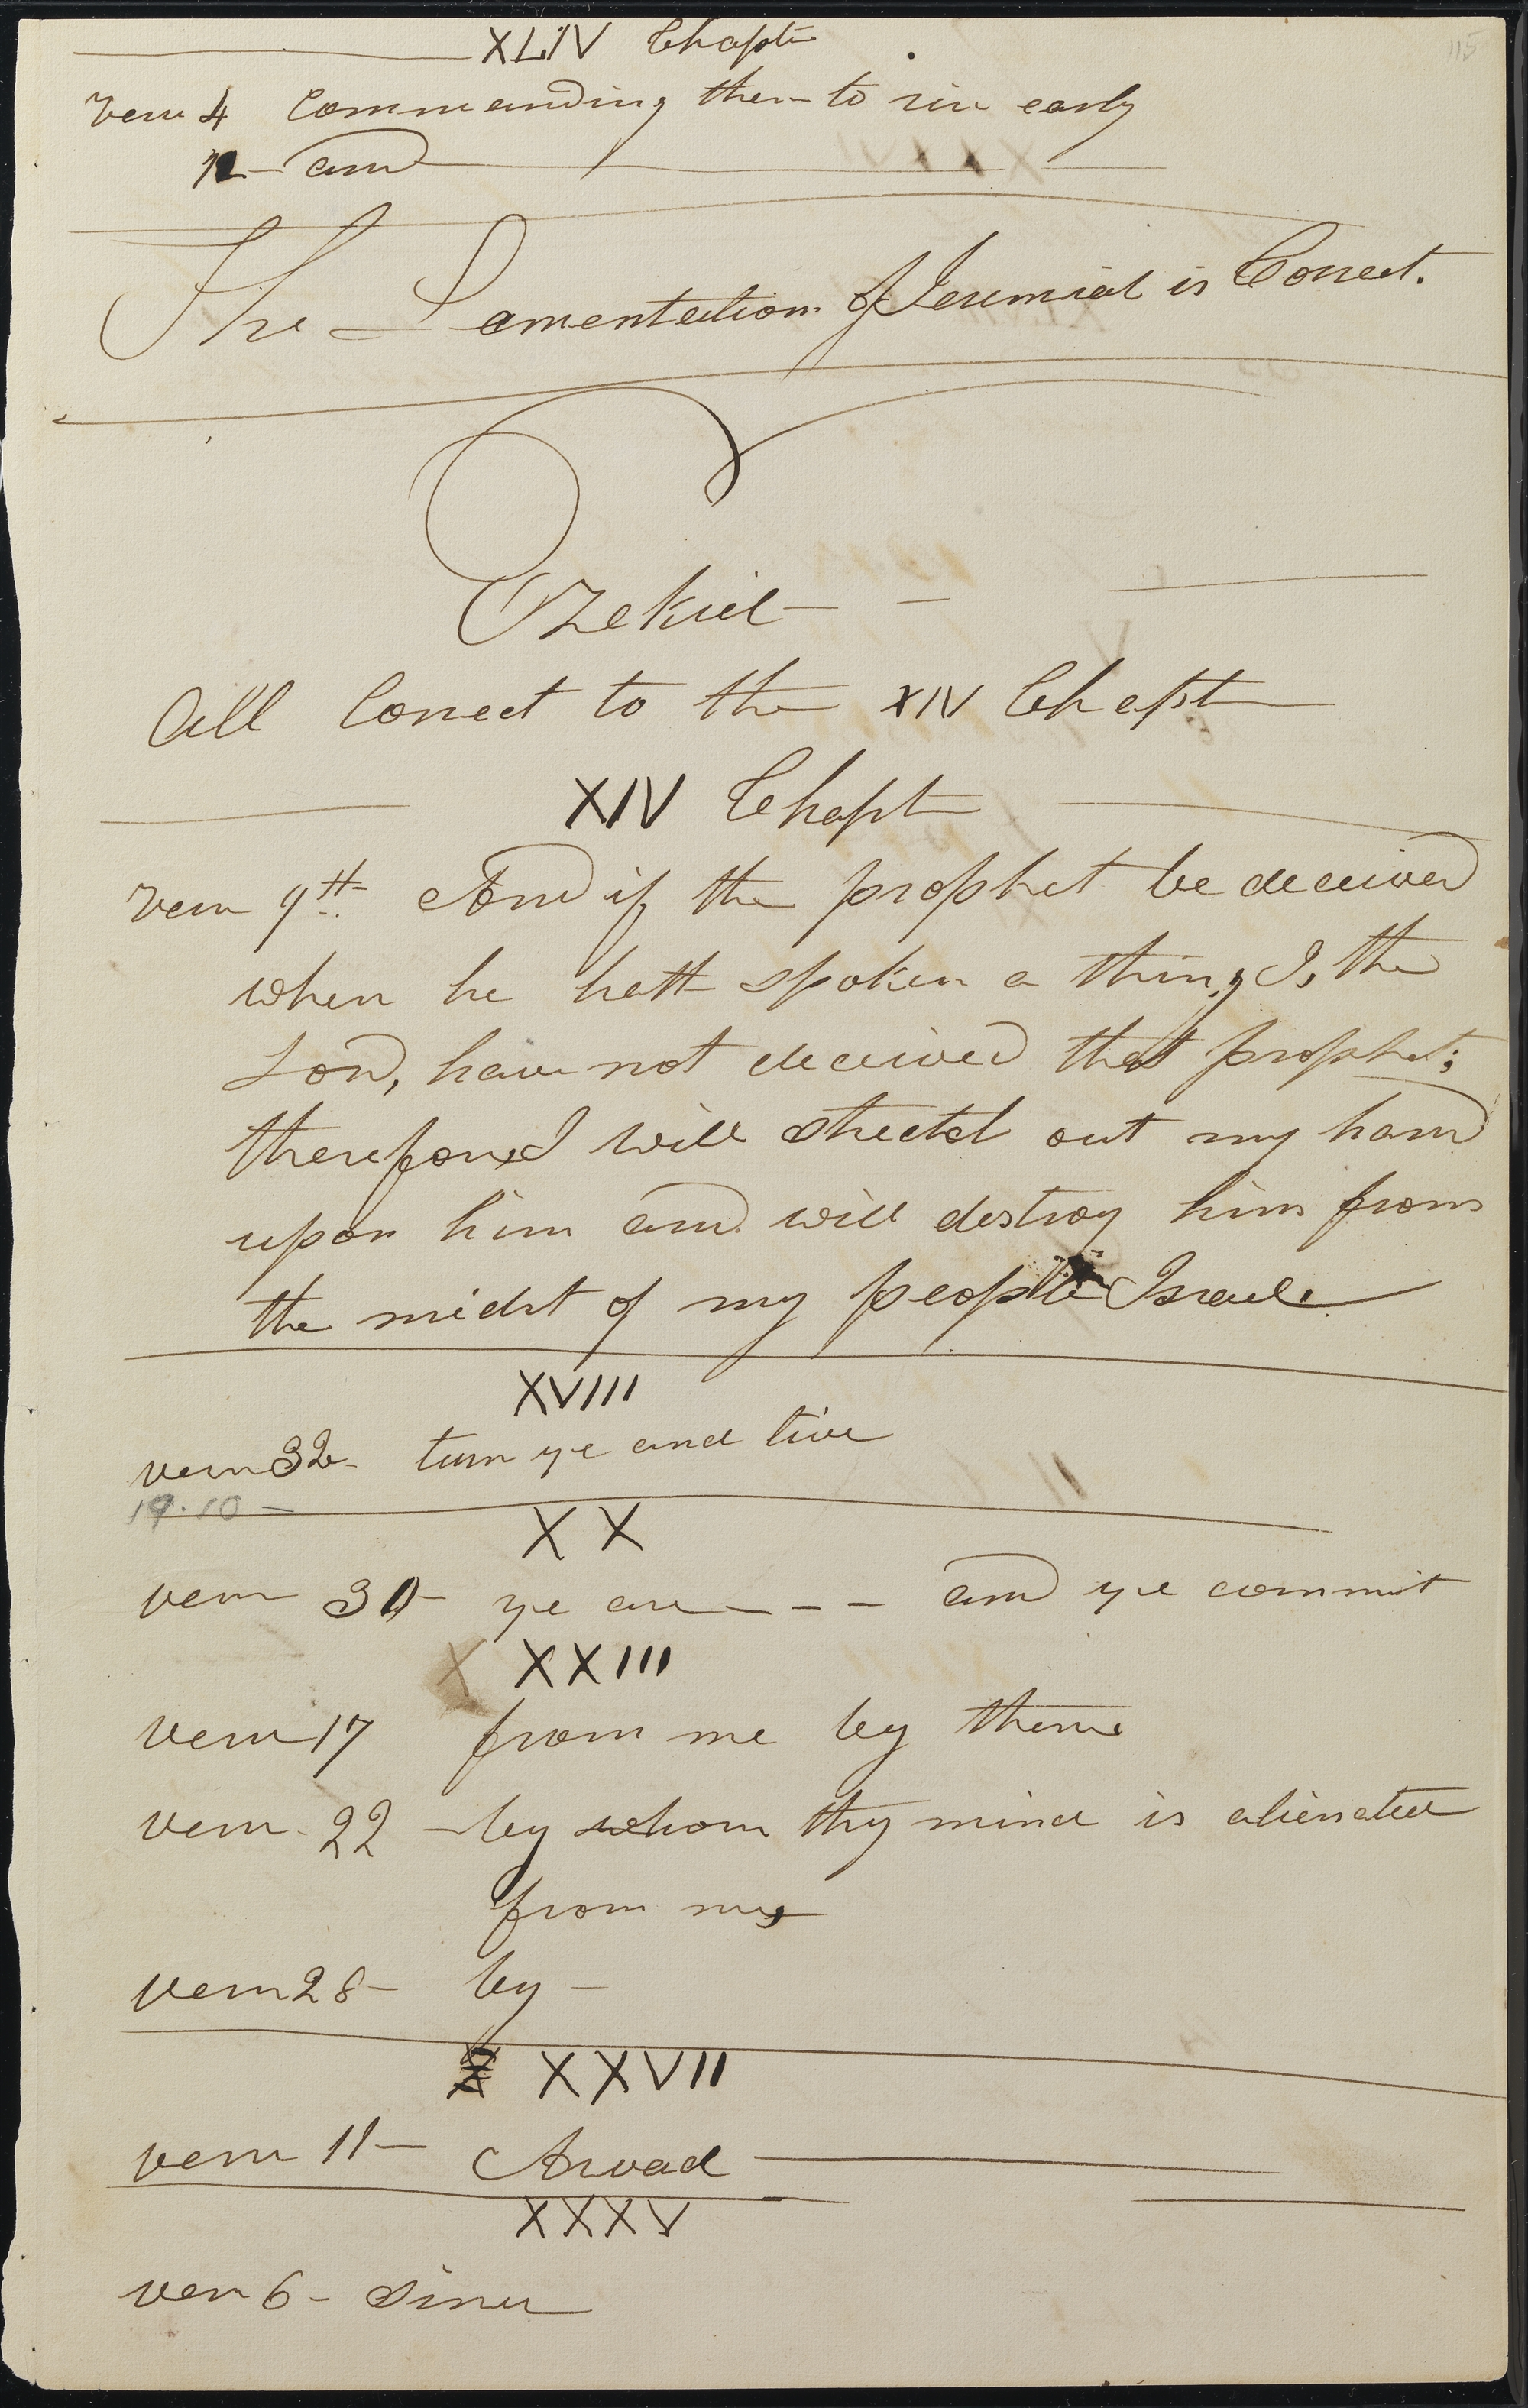 115
XLIV Chapter
Verse 4 Commanding them to rise early
12 - and
The Lamentations of Jeremiah is Correct.
Ezekiel
All Correct to the XIV Chapt
XIV Chapt
Verse 9th And if the prophet be deceived
when he hath spoken a thing I, the
Lord, have not deceived that prophet;
therefore I will stretch out my hand
upon him and will destroy him from
the midst of my people Israel.
XVIII
verse 32 - turn ye and live
19.10 -
XX
verse 30 - ye are - - - and ye commit
X XXIII
verse 17 from me by them
verse 22 - by whom thy mind is alienated
from me,
verse 28 - by -
XXVII
verse 11 - Arvad
XXXV
vers 6 - since